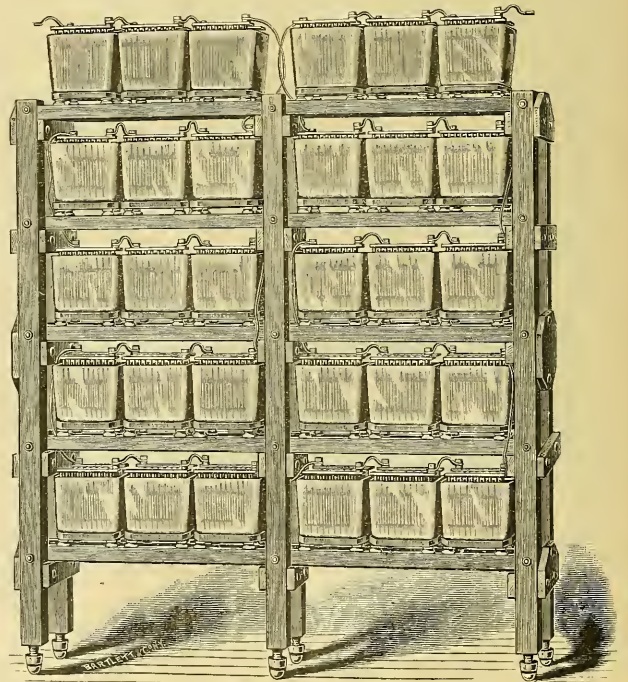 BARTLETT & CO. N.Y.